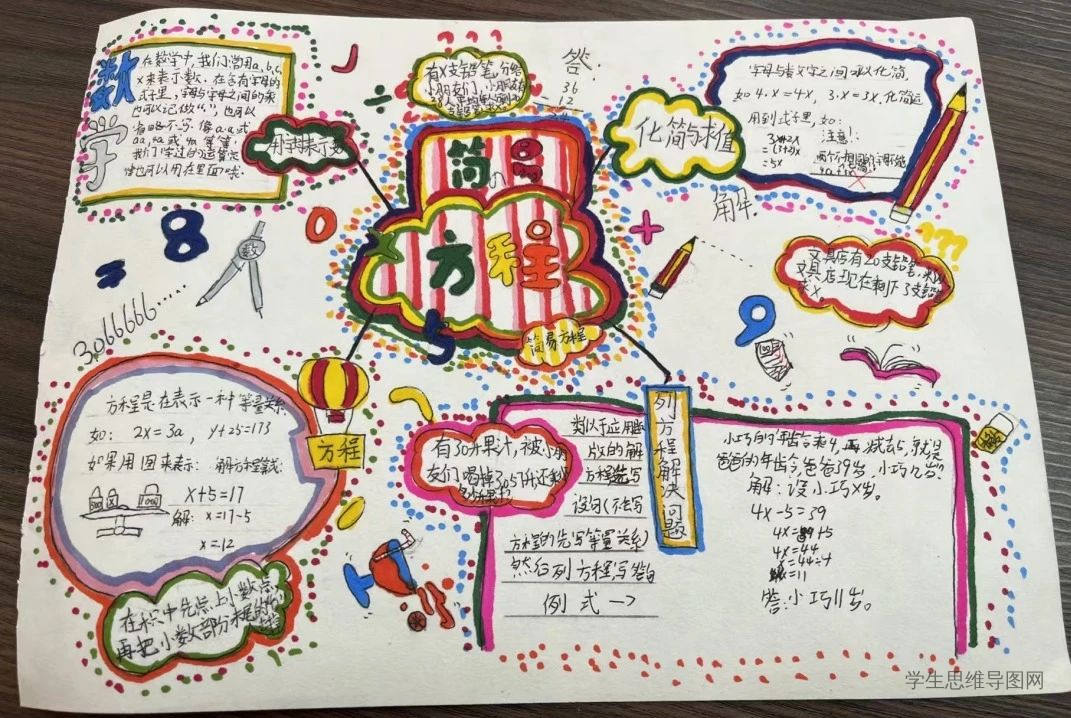 数
字
在数学中,我们常用a,b,c,
x来表示数。在含有字母的
式子里,字母与字母之间的乘
也可以记做“·”,也可以
省略不写。像a·a或
aa,4a或
我们学过的运算定
律也可以用在里面哦。
用字母表示
有X支铅笔,分给
小朋友们,
答:
36
12
24
简易
方程
简易方程
化简与求值
字母与数字之间可以化简,
如4·x=4x, 3·x=3x.化简运
用到式子里,如:
3x+2x
=(3+2)x
=5x
注意!
解:
文具店有20支铅笔,
文具店现在剩下3支铅
求x。
8
0
数
=
÷
+
x
5
9
3.066666……
方程是在表示一种等量关系
如: 2x=3a, y+25=173
如果用图来表示: 解方程算式:
x+5=17
解: x=17-5
x=12
方程
在积中先点上小数点,
再把小数部分末尾
有30升果汁,被小朋
友们喝掉
列方程解决问题
类似于应用题
版的解
方程先写
设句(不会写
方程的先写等量关系)
然后列方程,写答句
例式→
小巧的年龄乘4,再减去5,就是
爸爸的年龄,爸爸39岁,小巧几岁?
解:设小巧x岁。
4x-5=39
4x=39+5
4x=44
x=44÷4
x=11
答:小巧11岁。
学生思维导图网